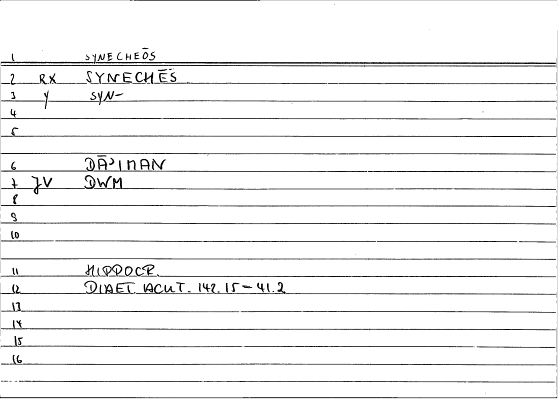 1 SYNECHEŌS
2 RX SYNECHĒS
3 Y SYN-
4
5
6 DĀʾIMAN
7 JV DWM
8
9
10
11 HIPPOCR.
12 DIAET. ACUT. 142.15-41.2
13
14
15
16